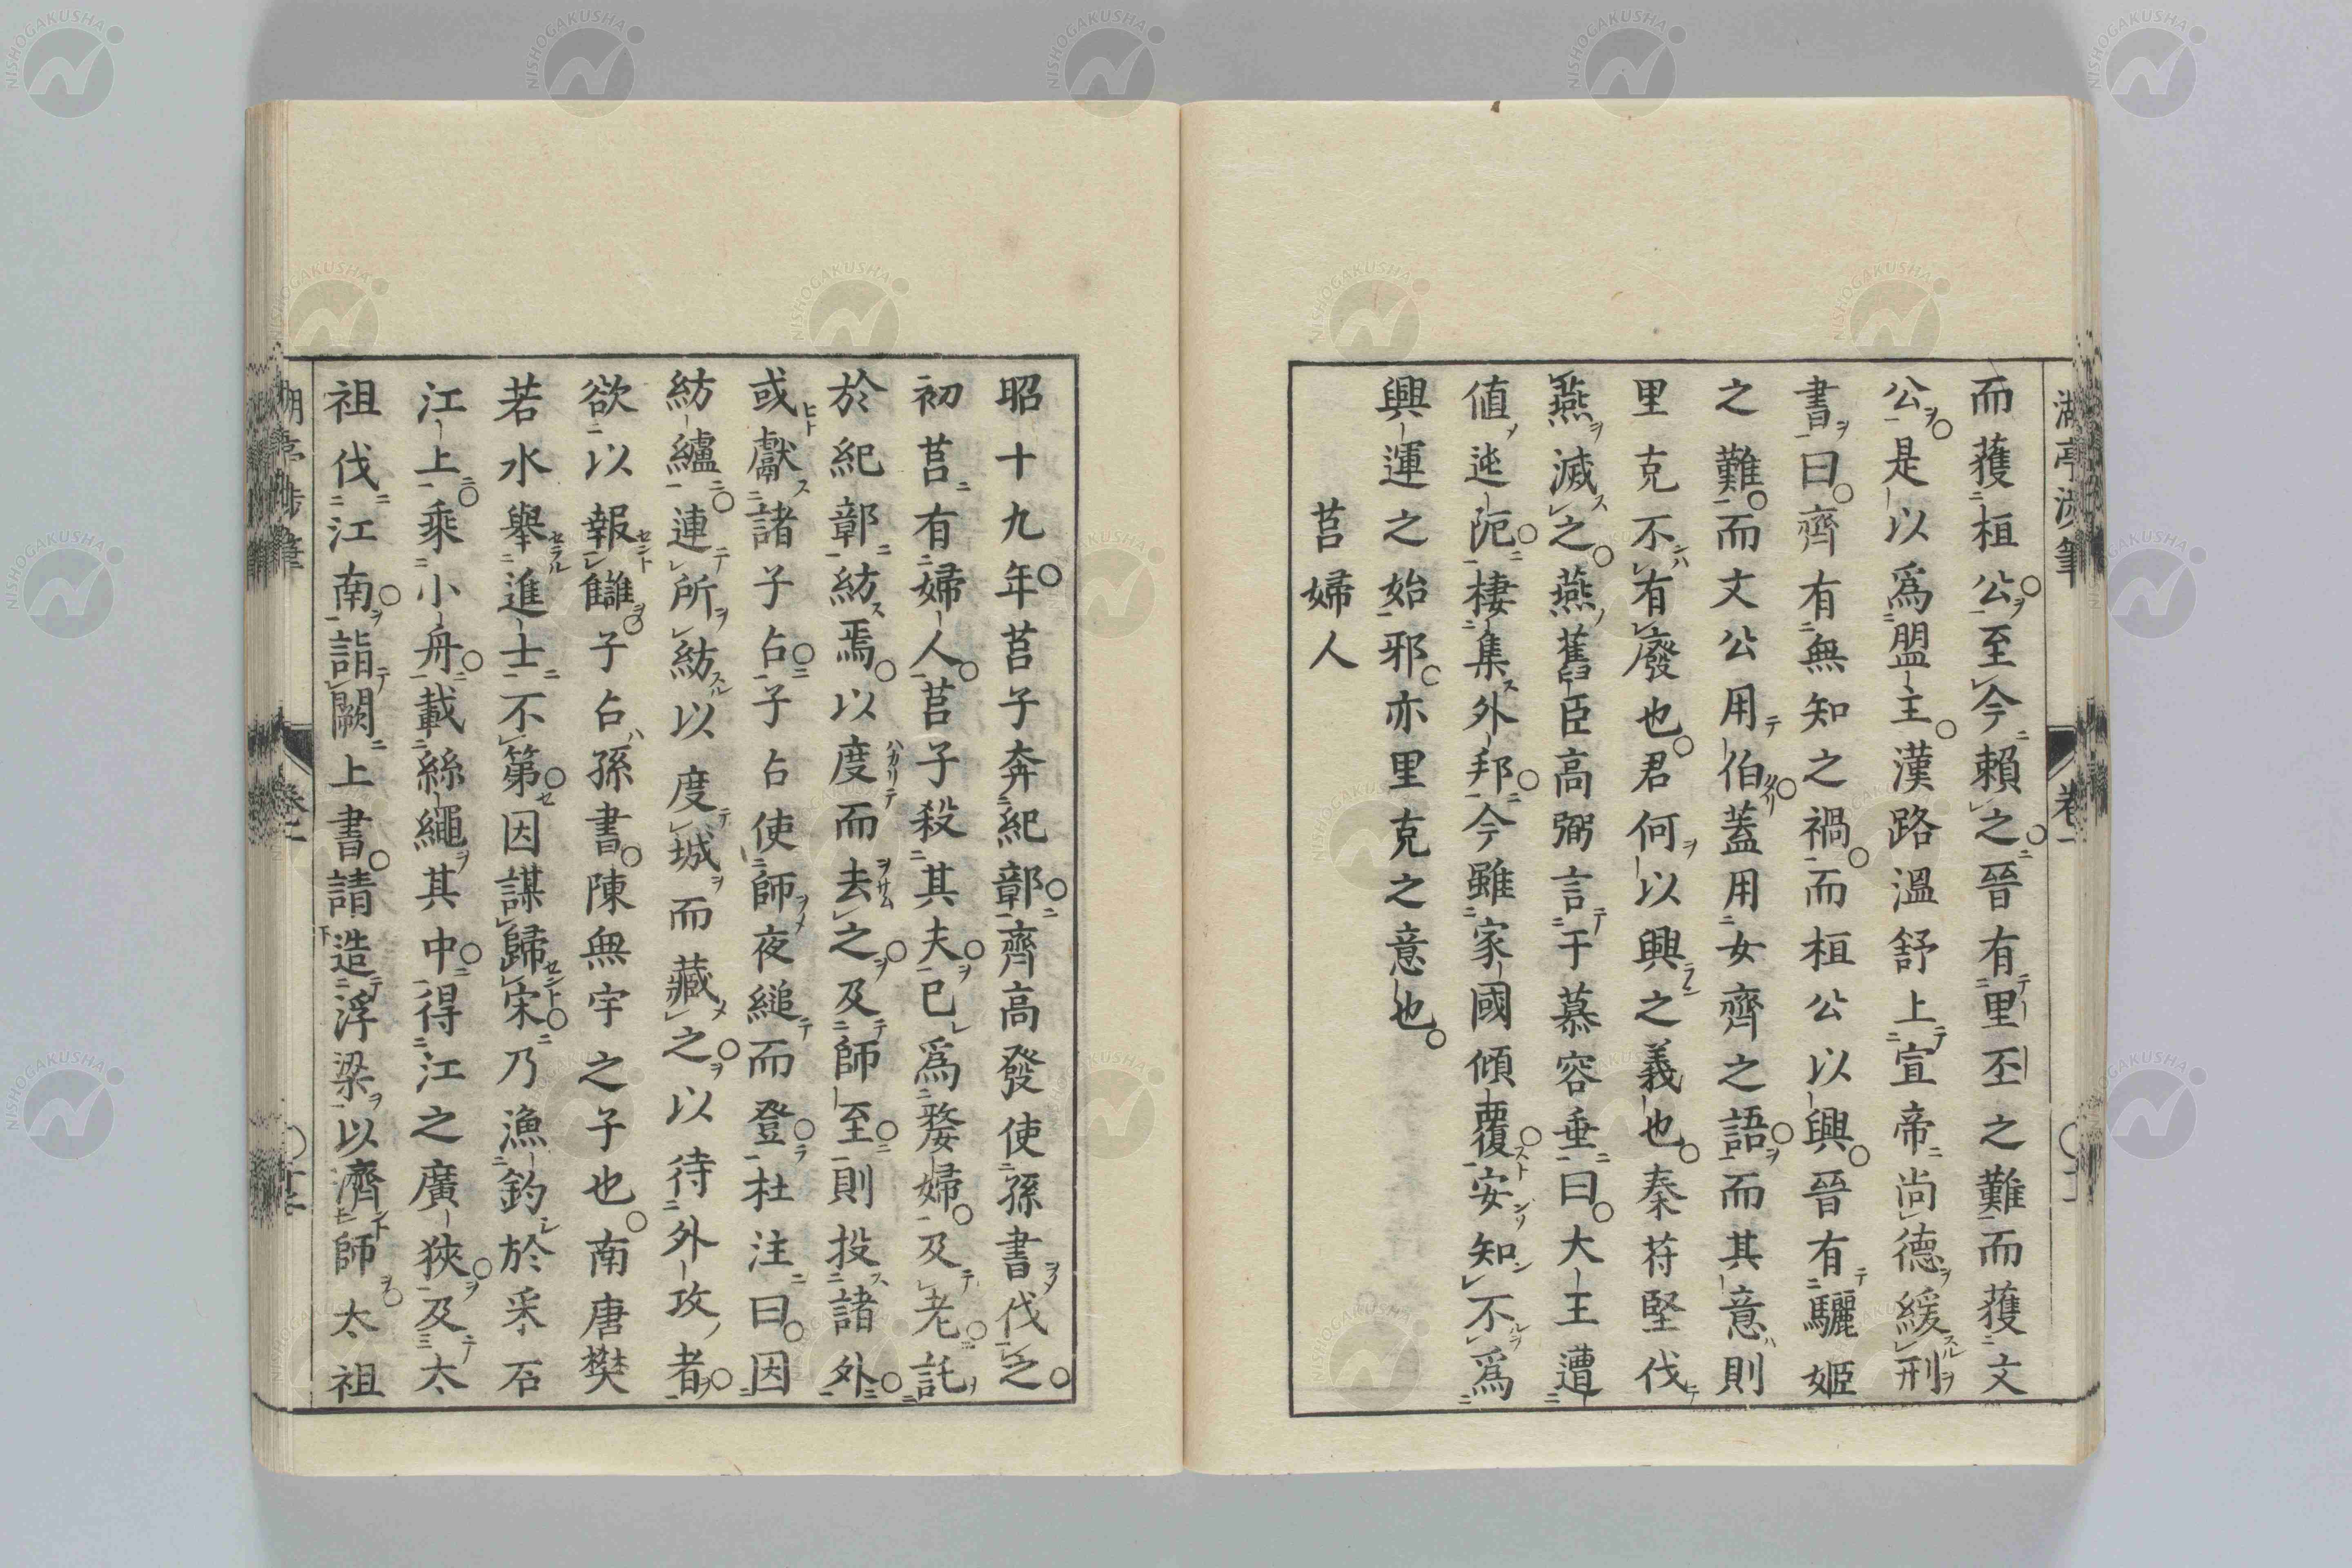 而獲桓公至今賴之晉有里丕之難而獲文
公是以爲盟主漢路溫舒上宣帝尚德緩刑
書曰齊有無知之禍而桓公以興晉有驪姬
之難而文公用伯蓋用女齊之語而其意則
里克不有廢也君何以興之義也秦苻堅伐
燕滅之燕舊臣高弼言于慕容垂曰大王遭
値迍阨棲集外邦今雖家國傾覆安知不爲
興運之始邪亦里克之意也
莒婦人
昭十九年莒子奔紀鄣齊高發使孫書伐之
初莒有婦人莒子殺其夫已爲嫠婦及老託
於紀鄣紡焉以度而去之及師至則投諸外
或獻諸子占子占使師夜縋而登杜注曰因
紡纑連所紡以度城而藏之以待外攻者
欲以報讎子占孫書陳無宇之子也南唐樊
若水舉進士不第因謀歸宋乃漁釣於采石
江上乘小舟載絲繩其中得江之廣狹及太
祖伐江南詣闕上書請造浮梁以濟師太祖